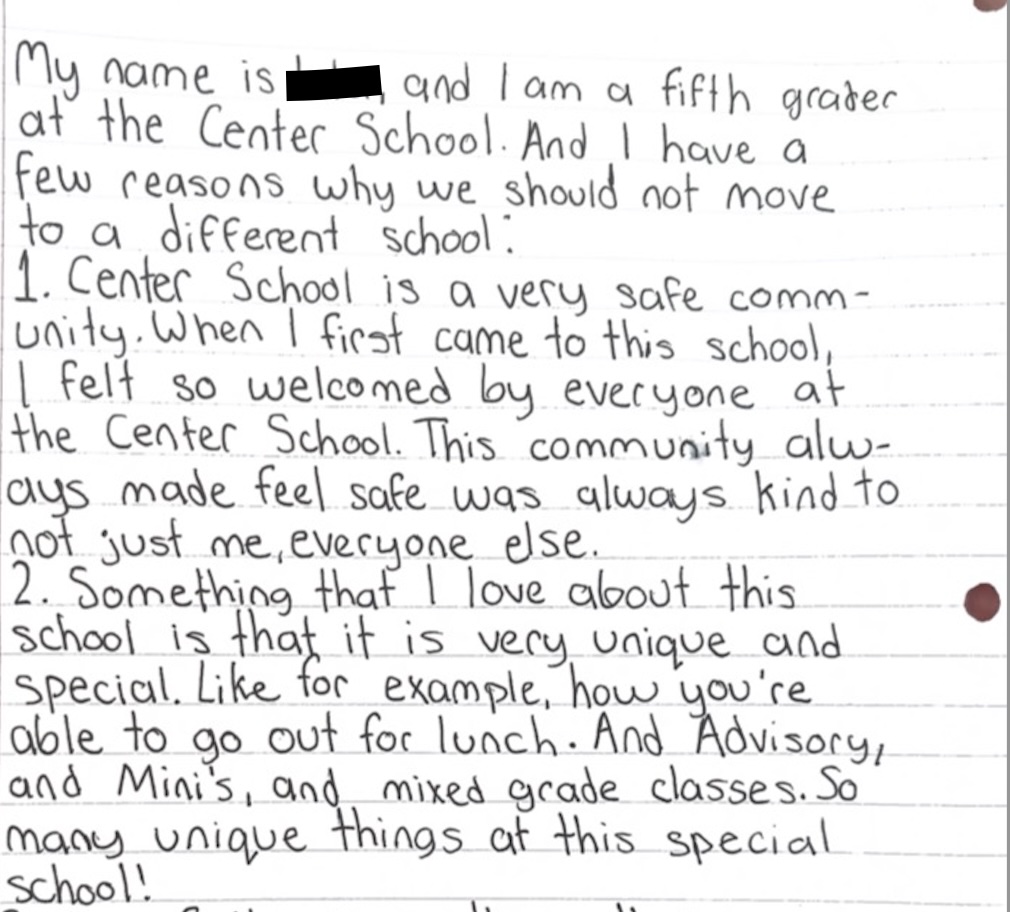 My name is , and I am a fifth grader
at the Center School. And I have a
few reasons why we should not move
to a different school:
1. Center School is a very safe comm-
unity. When I first came to this school,
I felt so welcomed by everyone at
the Center School. This community alw-
ays made feel safe was always kind to
not just me, everyone else.
2. Something that I love about this
school is that it is very unique and
special. Like for example, how you're
able to go out for lunch. And Advisory,
and Mini's, and mixed grade classes. So
many unique things at this special
school!